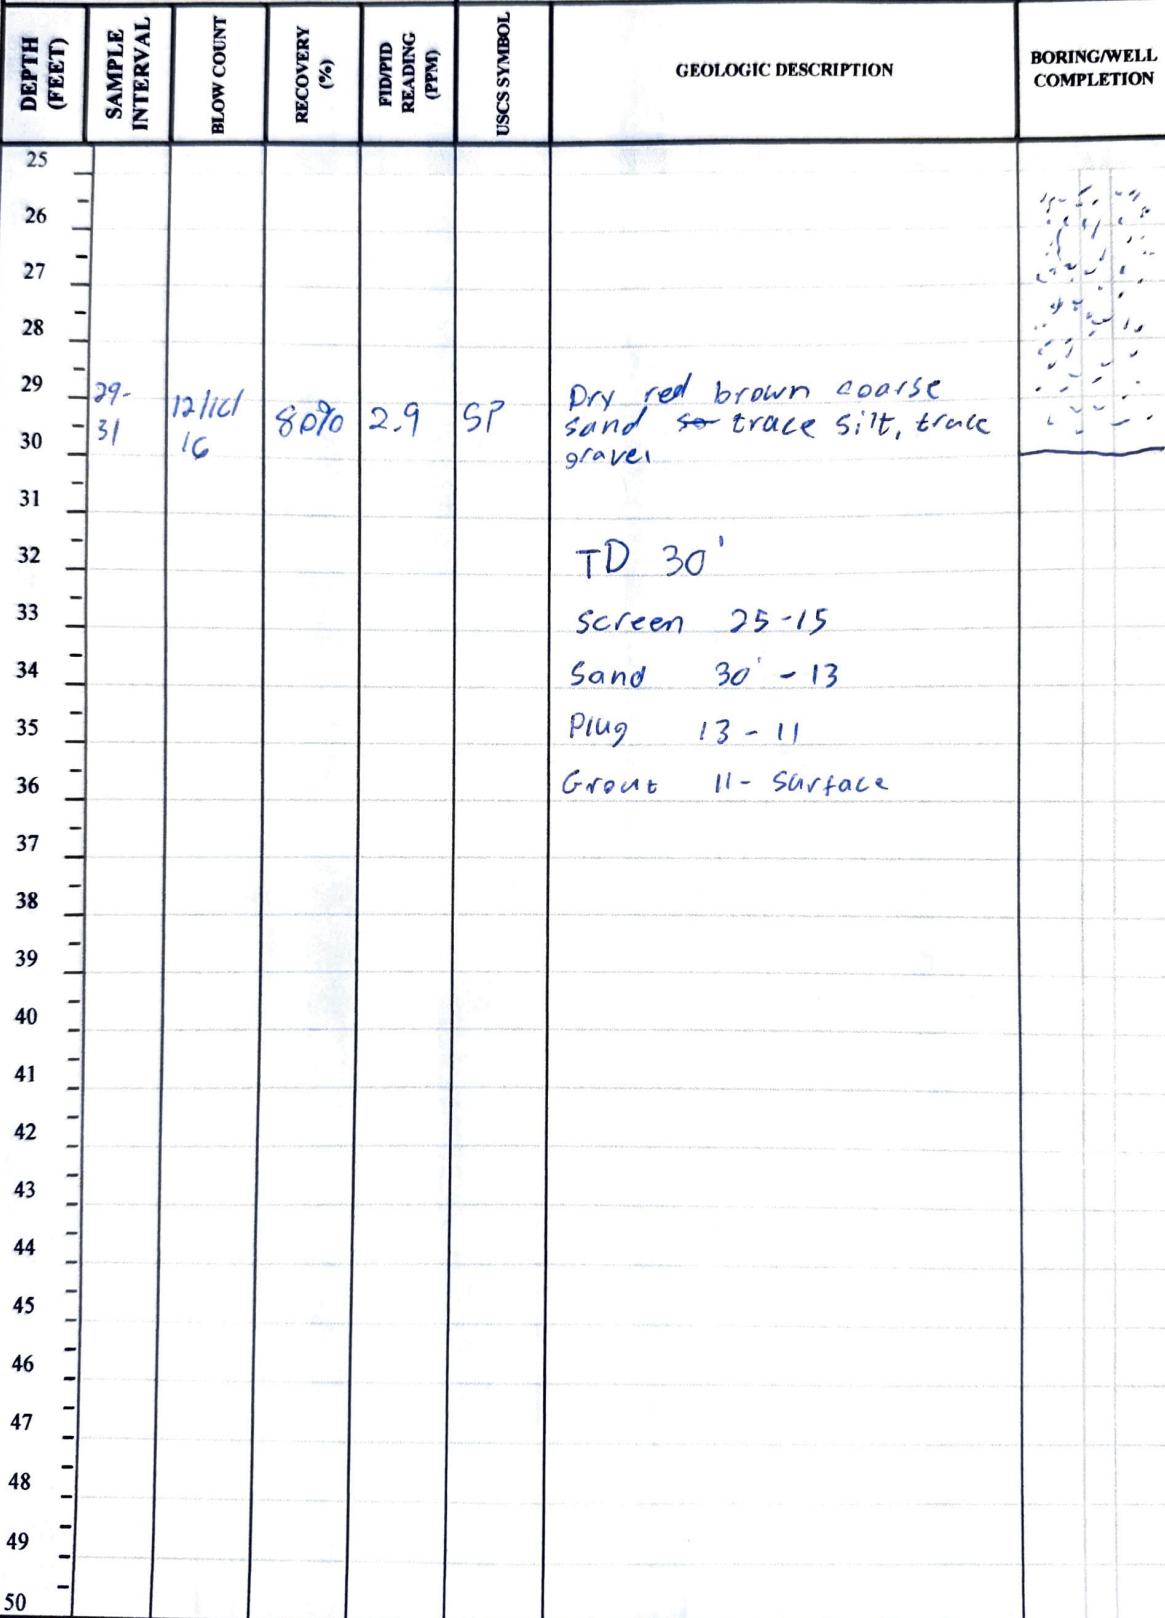 DEPTH (FEET)
SAMPLE INTERVAL
BLOW COUNT
RECOVERY (%)
FID/PID READING (PPM)
USCS SYMBOL
GEOLOGIC DESCRIPTION
BORING/WELL COMPLETION
25
26
27
28
29
29-
31
12/
16
80%
2.9
SP
Dry red brown coarse
sand trace silt, trace
gravel
30
31
32
TD 30'
33
Screen 25-15
34
Sand 30' - 13
35
Plug 13 - 11
36
Grout 11- Surface
37
38
39
40
41
42
43
44
45
46
47
48
49
50